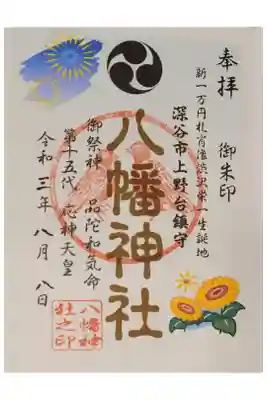 奉拝
御朱印
新一万円札肖像渋沢栄一生誕地
深谷市上野台鎮守
八幡神社
御祭神 品陀和気命
第十五代 応神天皇
令和三年八月八日
八幡神社之印